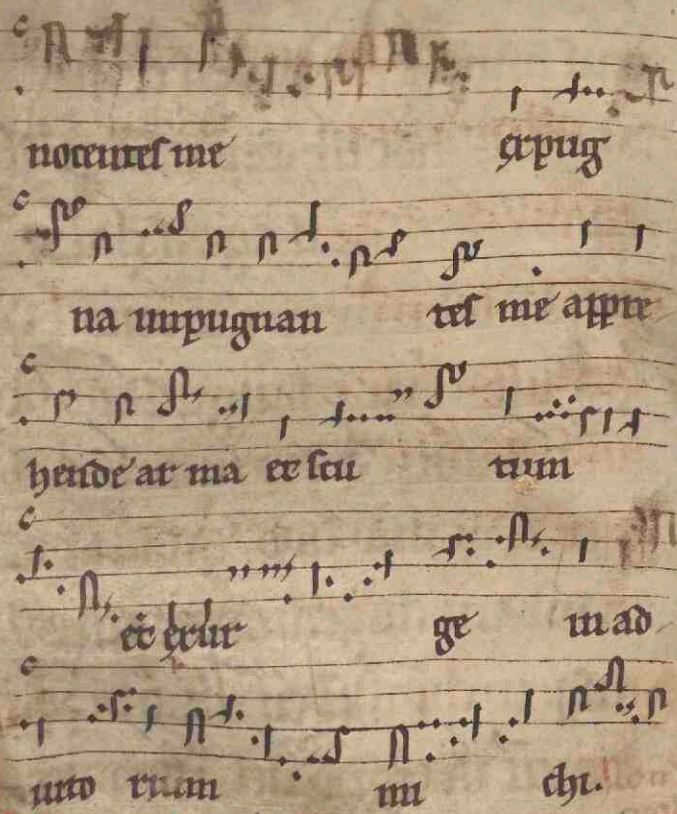 nocentes me expug
na inpugnan tes me appre
hende ar ma et scu tum
et exur ge in ad
iuto rium mi chi.